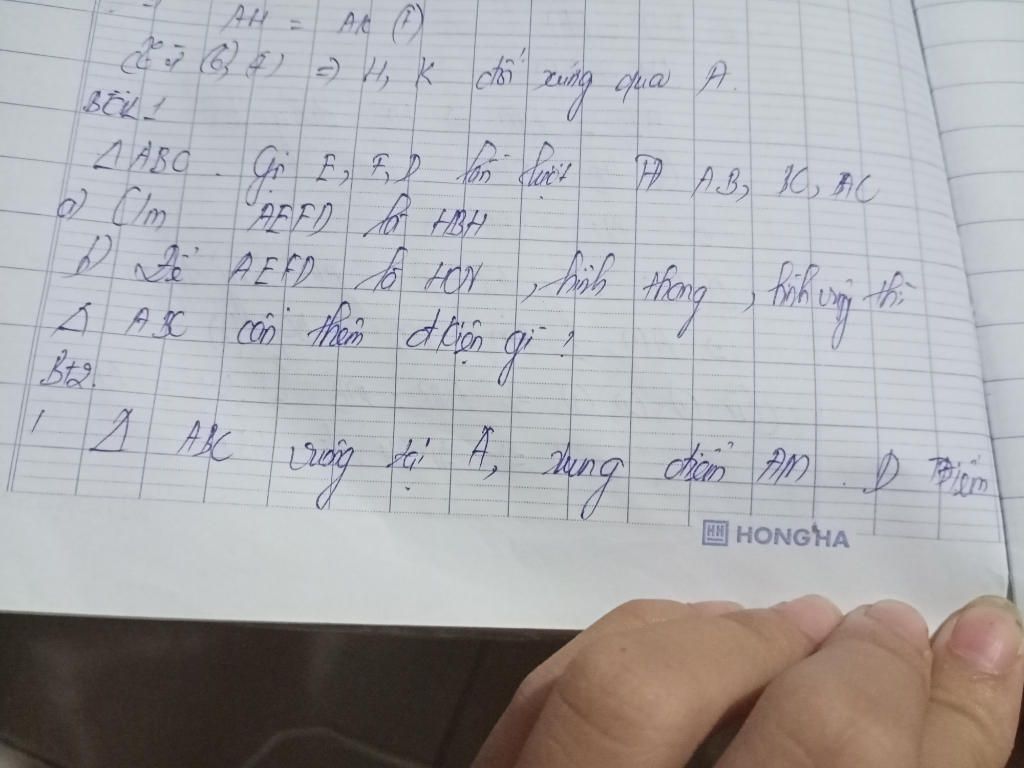 AH = AK (1)
Từ (6, 7) => H, K đối xứng qua A.
BTVN 1
Δ ABC. Gọi E, F, D lần lượt TĐ AB, BC, AC
a) C/m AEFD là HBH
b) Để AEFD là HCN, hình thoi, hình vuông thì
Δ ABC cần thêm đkiện gì?
Bt2.
1 Δ ABC vuông tại A, trung điểm AM. D
HONG HA